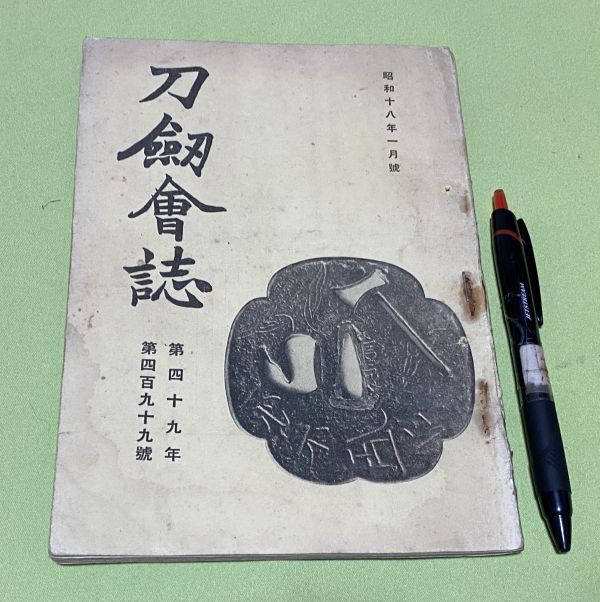 昭和十八年一月號
刀劔會誌
第四十九年
第四百九十九號
JETSTREAM